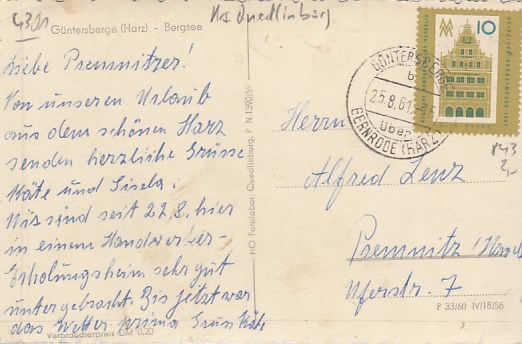 4311
Krs Quedlinburg
Güntersberge (Harz) - Bergsee
Liebe Premnitzer!
Von unseren Urlaub
aus dem schönen Harz
senden herzliche Grüsse
Käte und Gisela.
Wir sind seit 22.8. hier
in einem Handwerker-
Erholungsheim sehr gut
untergebracht. Bis jetzt war
das Wetter prima Gruss Käte
Verbraucherpreis DM 0.20
HO Fotolabor, Quedlinburg, P N 1390/59
MM 10
GÜNTERSBERGE
25.8.61
über
GERNRODE (HARZ)
843
2,-
Herrn
Alfred Lenz
Premnitz/Havel
Uferstr. 7
P 33/60 IV/18/56